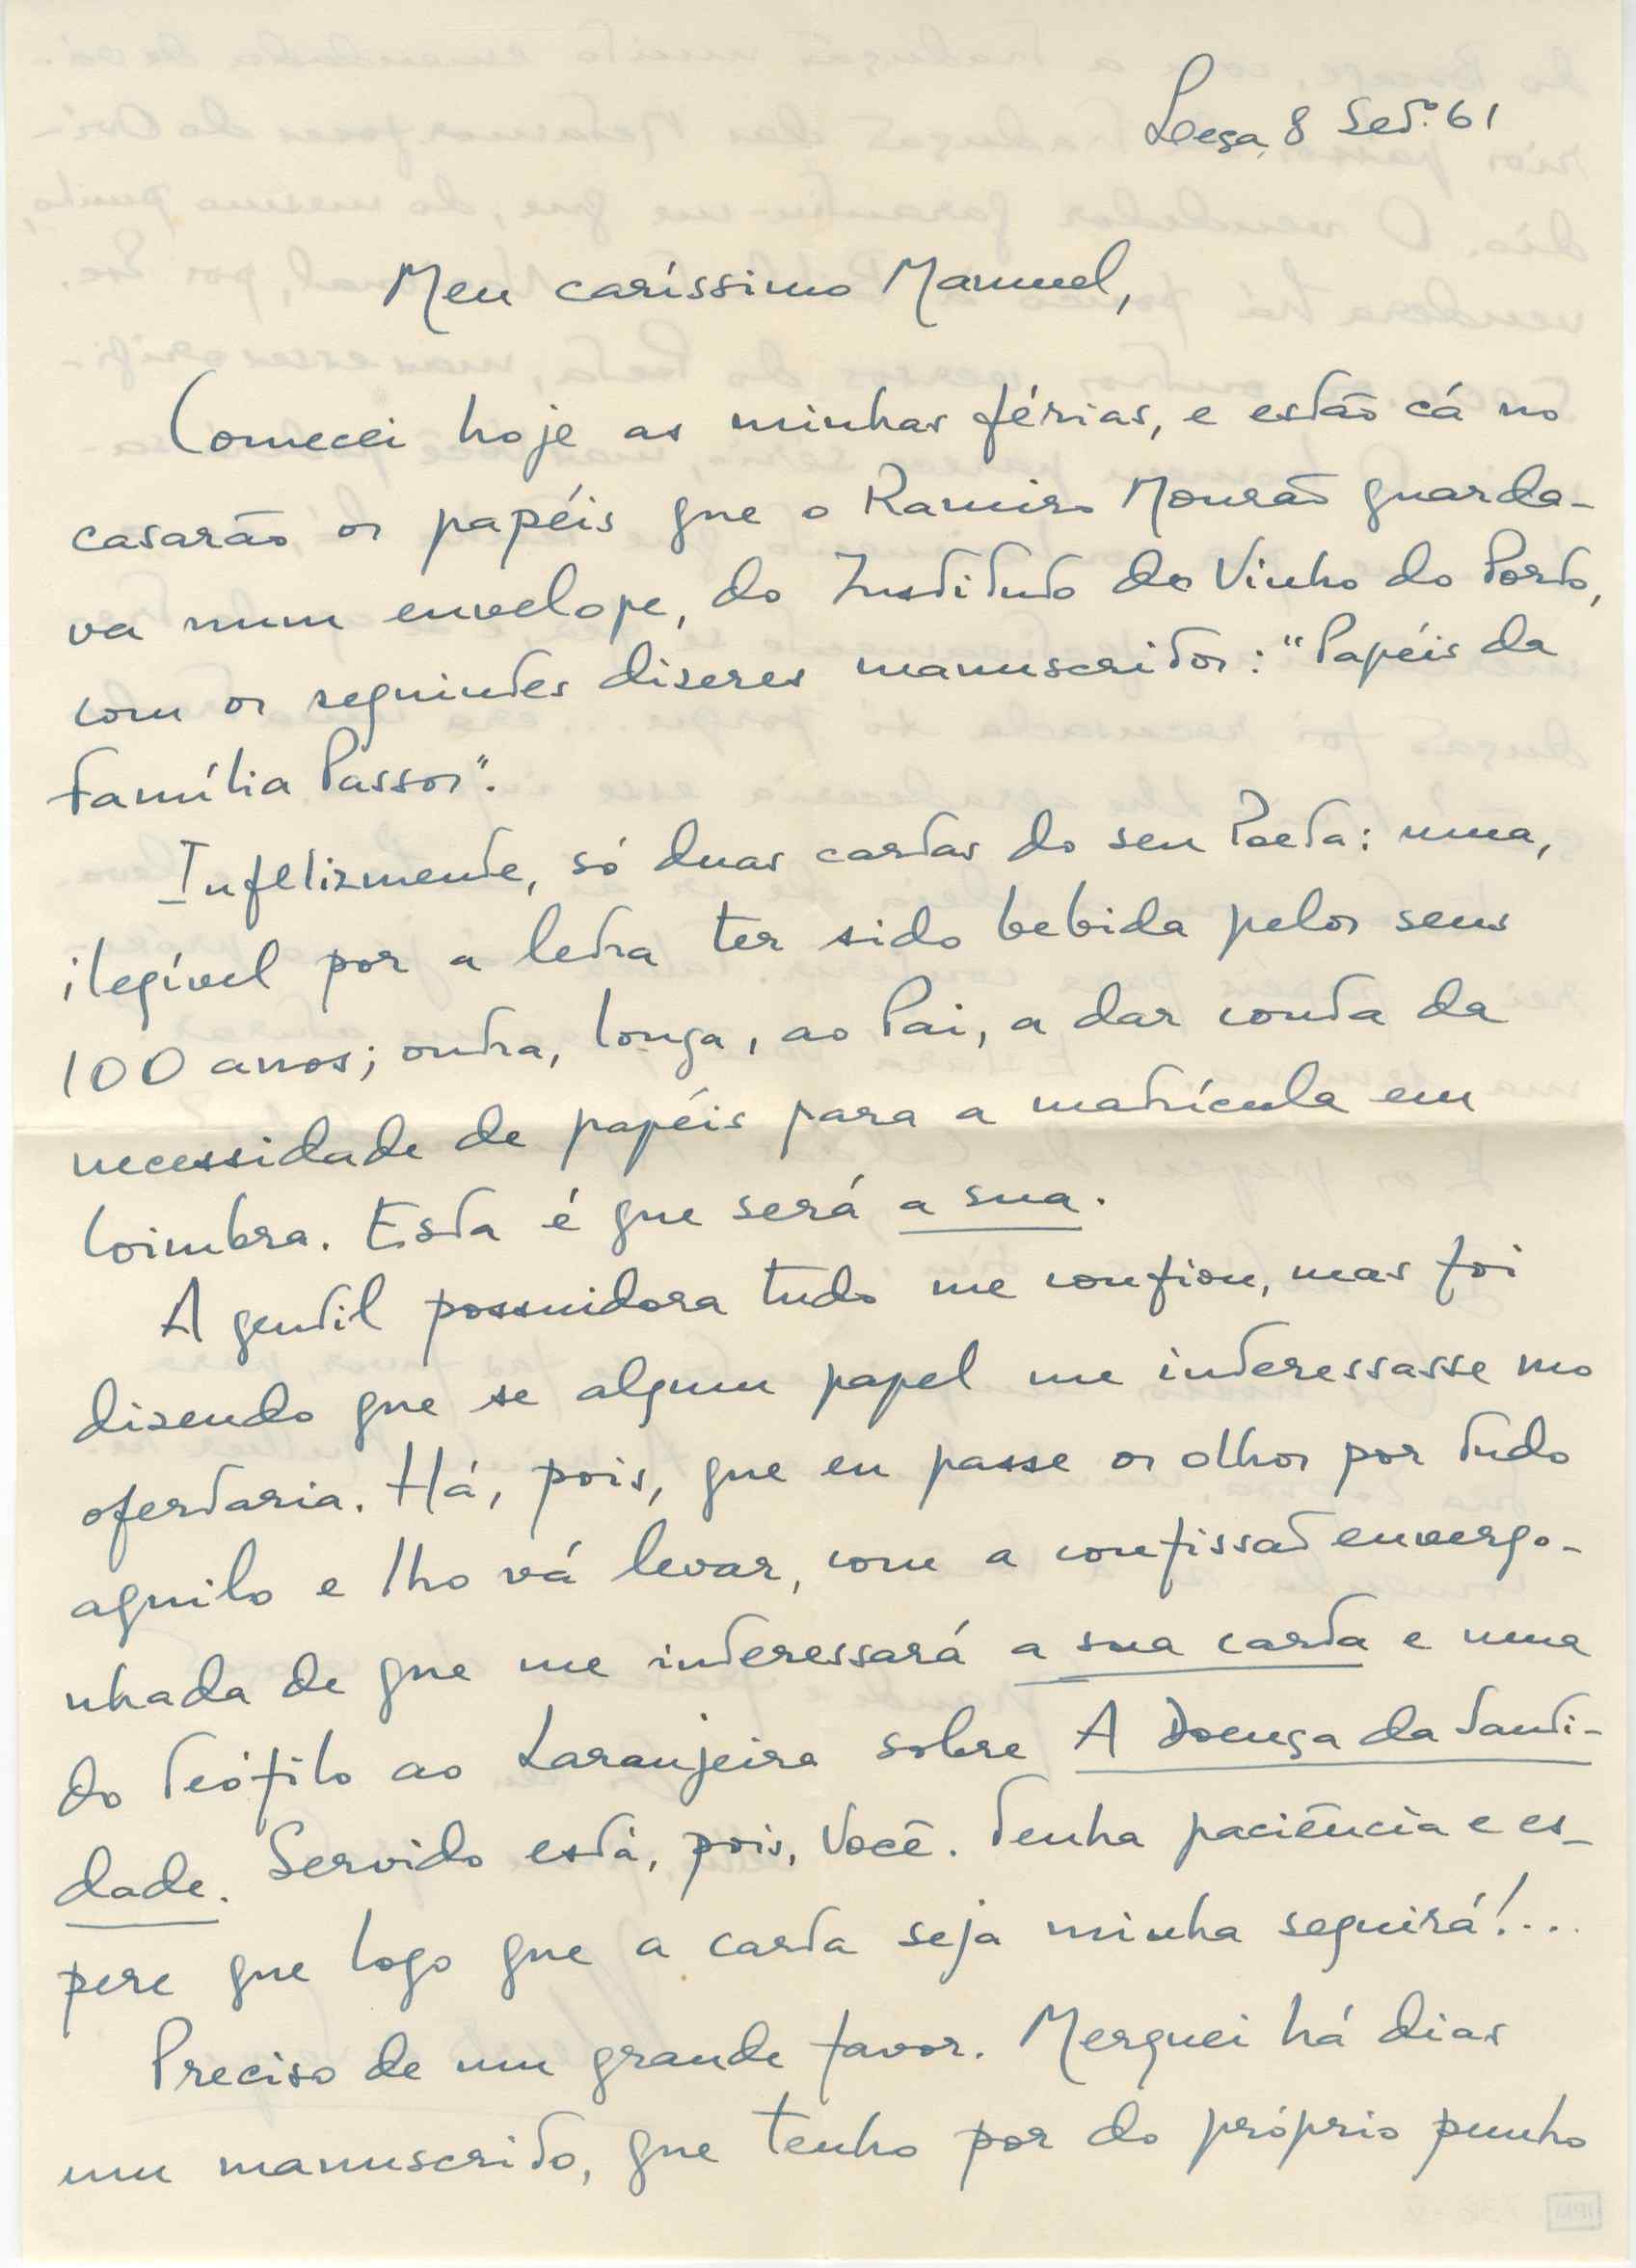 Leça, 8 Set.º 61
Meu caríssimo Manuel,
Comecei hoje as minhas férias, e estão cá no
casarão os papéis que o Ramiro Mourão guarda-
va num envelope, do Instituto do Vinho do Porto,
com os seguintes dizeres manuscritos: "Papéis da
família Passos".
Infelizmente, só duas cartas do seu Poeta: uma,
ilegível por a letra ter sido bebida pelos seus
100 anos; outra, longa, ao Pai, a dar conta da
necessidade de papéis para a matrícula em
Coimbra. Esta é que será a sua.
A gentil possuidora tudo me confiou, mas foi
dizendo que se algum papel me interessasse mo
ofertaria. Há, pois, que eu passe os olhos por tudo
aquilo e lho vá levar, com a confissão envergo-
nhada de que me interessará a sua carta e uma
do Teófilo ao Laranjeira sobre A Doença da Santi-
dade. Servido está, pois, Você. Tenha paciência e es-
pere que logo que a carta seja minha seguirá!...
Preciso de um grande favor. Merquei há dias
um manuscrito, que tenho por do próprio punho